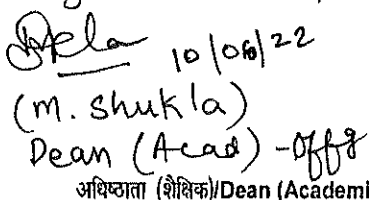 10/06/22
(M. Shukla)
Dean (Acad) - Offg
अधिष्ठाता (शैक्षिक)/Dean (Academi